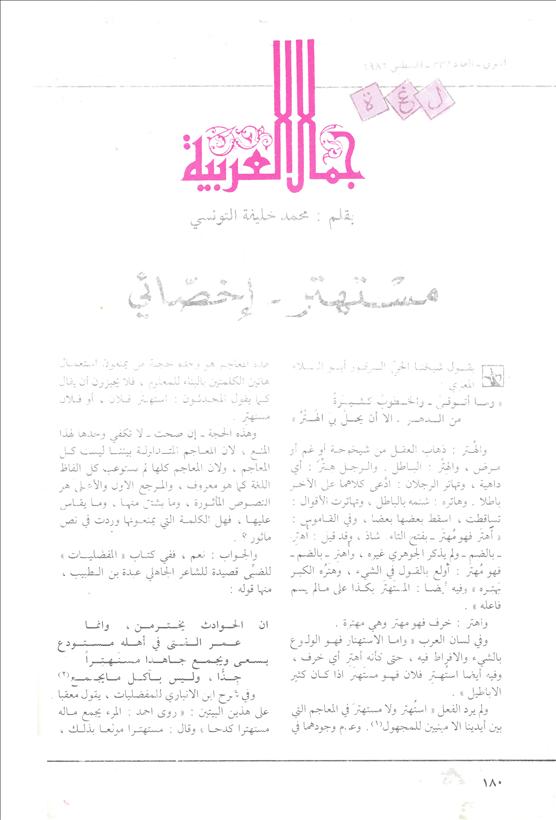 العربي - العدد ٢٣٧ - اغسطس ١٩٨٢
ل غ ة
جمال العربية
بقلم : محمد خليفة التونسي
مستهتر - إخصّائي
يقول شيخنا الحيّ المرفور أبو العلاء
المعري :
« وما أتوقى ، والخطوب كثيرة
من الدهر ، الا أن يحل بي الهتر »
والهُتر : ذهاب العقل من شيخوخة أو غم أو
مرض ، والهتر : الباطل . والرجل هتر : أي
داهية ، وتهاتر الرجلان : ادّعى كلاهما على الآخر
باطلا . وهاتره : شتمه بالباطل ، وتهاترت الأقوال :
تساقطت ، اسقط بعضها بعضا ، وفي القاموس :
« أهتَر فهو مُهتَر - بفتح التاء شاذ ، وقد قيل : أُهتر
- بالضم - ولم يذكر الجوهري غيره ، وأهتر - بالضم -
فهو مُهتَر : أولع بالقول في الشيء ، وهتره الكبر
يهتره » وفيه أيضا : المستهتر بكذا على مالم يسم
فاعله »
واهتر : خرف فهو مهتر وهي مهترة .
وفي لسان العرب « واما الاستهتار فهو الولوع
بالشيء والافراط فيه ، حتى كأنه أهتر أي خرف ،
وفيه أيضا استهتر فلان فهو مستهتر اذا كان كثير
الاباطيل » .
ولم يرد الفعل « استهتر ولا مستهتر في المعاجم التي
بين أيدينا الا مبنيين للمجهول (١) . وعدم وجودهما في
هذه المعاجم هو وحده حجة من يمنعون استعمال
هاتين الكلمتين بالبناء للمعلوم ، فلا يجيزون أن يقال
كما يقول المحدثون : استهتر فلان ، أو فلان
مستهتر .
وهذه الحجة - إن صحت - لا تكفي وحدها لهذا
المنع ، لان المعاجم المتداولة بيننا ليست كل
المعاجم ، ولان المعاجم كلها لم تستوعب كل الفاظ
اللغة كما هو معروف ، والمرجع الاول والأعلى هو
النصوص المأثورة ، وما يشتق منها ، وما يقاس
عليها ، فهل الكلمة التي يمنعونها وردت في نص
مأثور ؟ .
والجواب : نعم ، ففي كتاب « المفضليات »
للضبّي قصيدة للشاعر الجاهلي عبدة بن الطبيب ،
منها قوله :
ان الحوادث يخترمن ، وانما
عمر الفتى في أهله مستودع
يسعى ويجمع جاهدا مستهترا
جدّا ، وليس بآكل مايجمع (٢)
وفي شرح ابن الانباري للمفضليات ، يقول معقبا
على هذين البيتين : « روى احمد : المرء يجمع ماله
مستهترا كدحا ، وقال : مستهترا مولعا بذلك ،
١٨٠